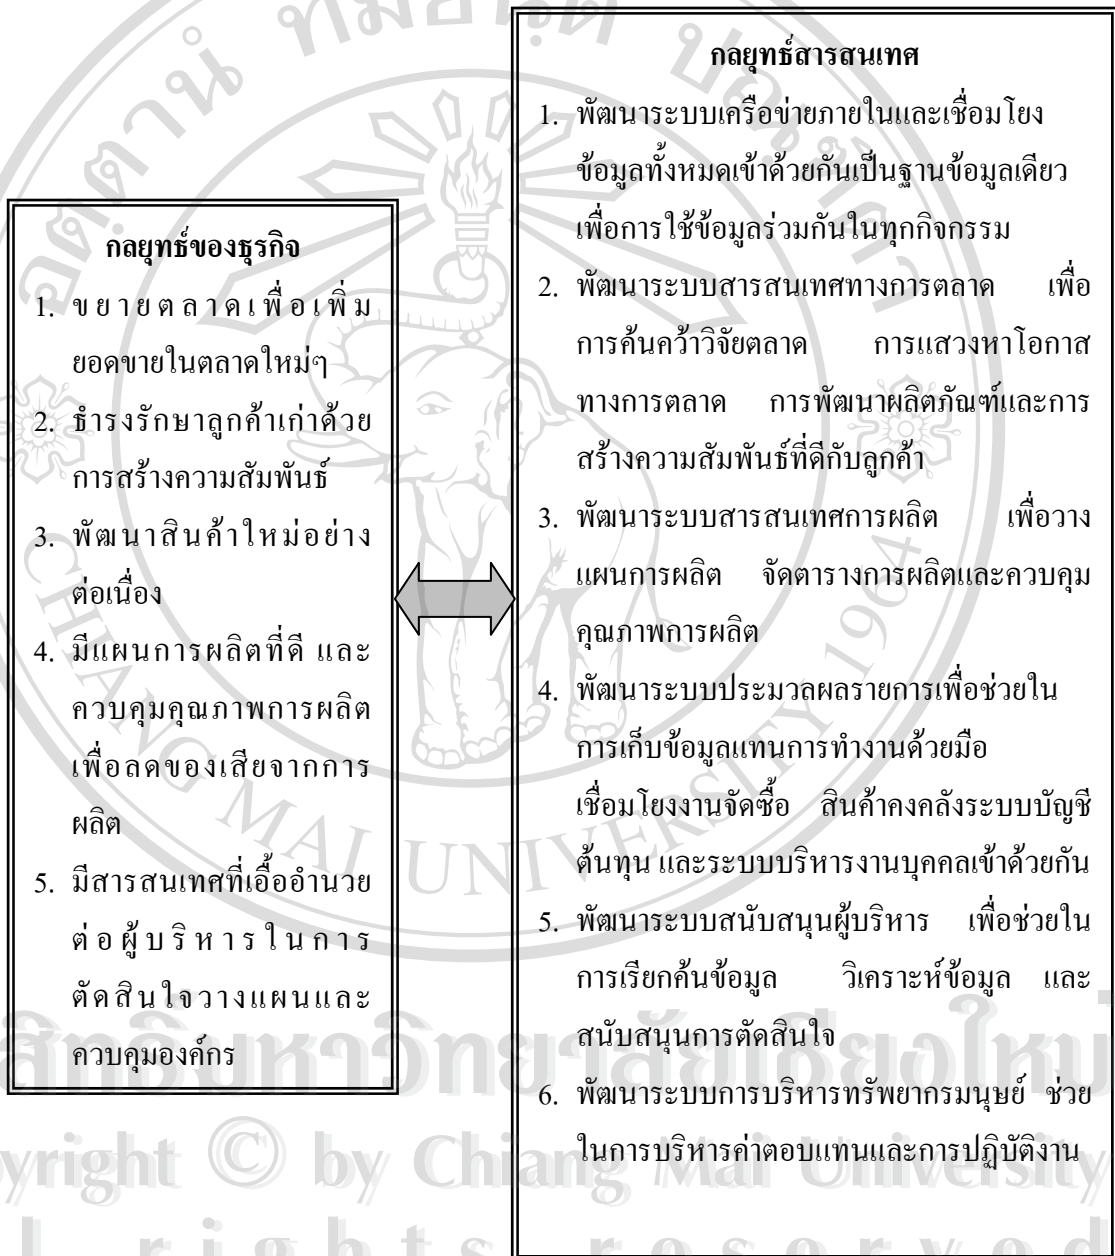 กลยุทธ์ของธุรกิจ
1. ขยายตลาดเพื่อเพิ่ม
ยอดขายในตลาดใหม่ๆ
2. ธำรงรักษาลูกค้าเก่าด้วย
การสร้างความสัมพันธ์
3. พัฒนาสินค้าใหม่อย่าง
ต่อเนื่อง
4. มีแผนการผลิตที่ดี และ
ควบคุมคุณภาพการผลิต
เพื่อลดของเสียจากการ
ผลิต
5. มีสารสนเทศที่เอื้ออำนวย
ต่อผู้บริหารในการ
ตัดสินใจวางแผนและ
ควบคุมองค์กร
กลยุทธ์สารสนเทศ
1. พัฒนาระบบเครือข่ายภายในและเชื่อมโยง
ข้อมูลทั้งหมดเข้าด้วยกันเป็นฐานข้อมูลเดียว
เพื่อการใช้ข้อมูลร่วมกันในทุกกิจกรรม
2. พัฒนาระบบสารสนเทศทางการตลาด เพื่อ
การค้นคว้าวิจัยตลาด การแสวงหาโอกาส
ทางการตลาด การพัฒนาผลิตภัณฑ์และการ
สร้างความสัมพันธ์ที่ดีกับลูกค้า
3. พัฒนาระบบสารสนเทศการผลิต เพื่อวาง
แผนการผลิต จัดตารางการผลิตและควบคุม
คุณภาพการผลิต
4. พัฒนาระบบประมวลผลรายการเพื่อช่วยใน
การเก็บข้อมูลแทนการทำงานด้วยมือ
เชื่อมโยงงานจัดซื้อ สินค้าคงคลังระบบบัญชี
ต้นทุน และระบบบริหารงานบุคคลเข้าด้วยกัน
5. พัฒนาระบบสนับสนุนผู้บริหาร เพื่อช่วยใน
การเรียกค้นข้อมูล วิเคราะห์ข้อมูล และ
สนับสนุนการตัดสินใจ
6. พัฒนาระบบการบริหารทรัพยากรมนุษย์ ช่วย
ในการบริหารค่าตอบแทนและการปฏิบัติงาน
CHIANG MAI UNIVERSITY 1964
สิทธิ์มหาวิทยาลัยเชียงใหม่
yright © by Chiang Mai University
l rights reserved